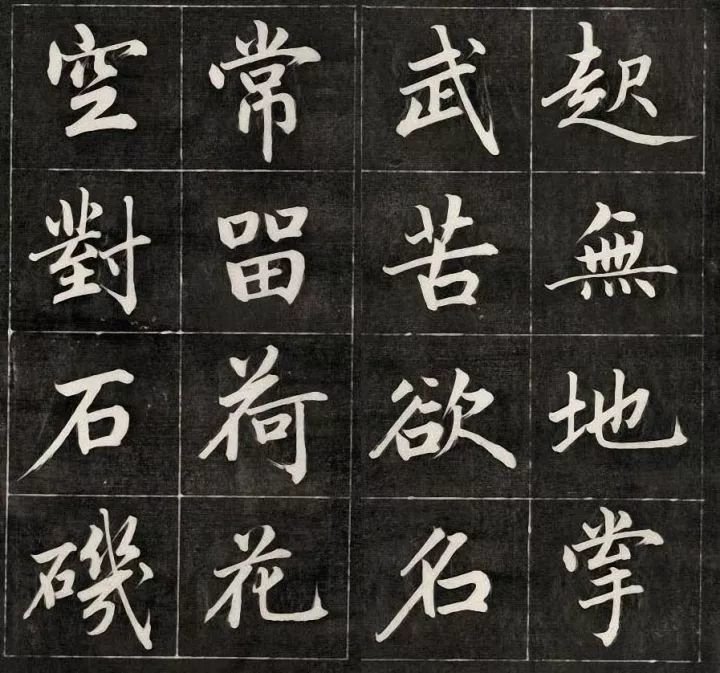 起無地掌
武苦欲名
常畱荷花
空對石磯